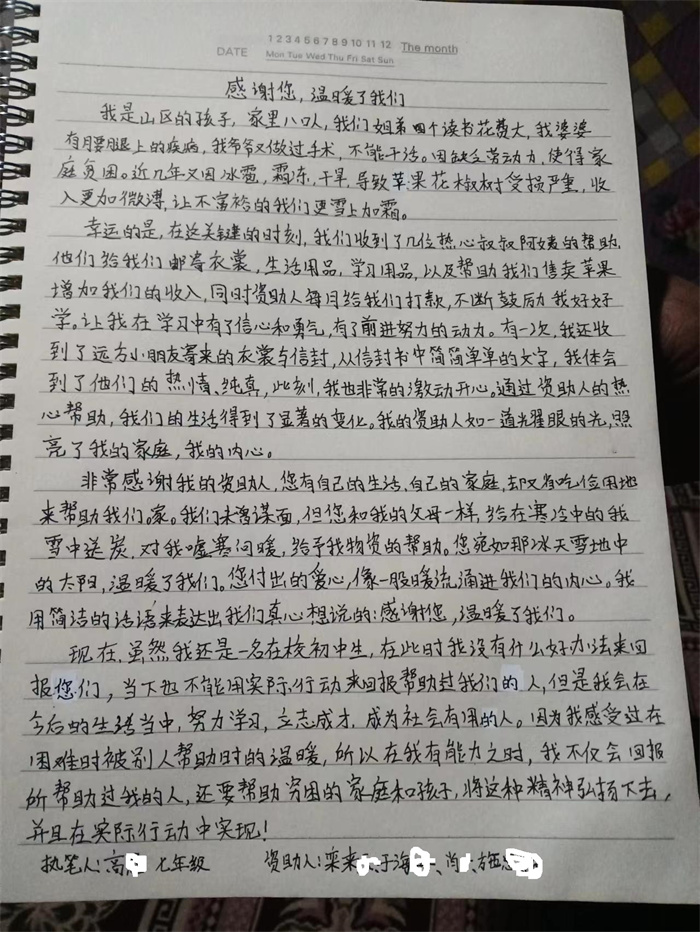 1 2 3 4 5 6 7 8 9 10 11 12 The month
DATE Mon Tue Wed Thu Fri Sat Sun
感谢您，温暖了我们
我是山区的孩子，家里八口人，我们姐弟四个读书花费大，我婆婆
有腰腿上的疾病，我爷爷又做过手术，不能干活。因缺乏劳动力，使得家
庭贫困。近几年又因冰雹，霜冻，干旱，导致苹果花椒树受损严重，收
入更加微薄，让不富裕的我们更雪上加霜。
幸运的是，在这关键的时刻，我们收到了几位热心叔叔阿姨的帮助，
他们给我们邮寄衣裳，生活用品，学习用品，以及帮助我们售卖苹果
增加我们的收入，同时资助人每月给我们打款，不断鼓励我好好
学。让我在学习中有了信心和勇气，有了前进努力的动力。有一次，我还收
到了远方小朋友寄来的衣裳与信封，从信封书中简简单单的文字，我体会
到了他们的热情、纯真，此刻，我也非常的激动开心。通过资助人的热
心帮助，我们的生活得到了显著的变化。我的资助人如一道光耀眼的光，照
亮了我的家庭，我的内心。
非常感谢我的资助人，您有自己的生活，自己的家庭，却又省吃俭用地
来帮助我们家。我们未曾谋面，但您和我的父母一样，给在寒冷中的我
雪中送炭，对我嘘寒问暖，给予我物资的帮助。您宛如那冰天雪地中
的太阳，温暖了我们。您付出的爱心，像一股暖流涌进我们的内心。我
用简洁的话语来表达出我们真心想说的：感谢您，温暖了我们。
现在，虽然我还是一名在校初中生，在此时我没有什么好办法来回
报您们，当下也不能用实际行动来回报帮助过我们的人，但是我会在
今后的生活当中，努力学习，立志成才，成为社会有用的人。因为我感受过在
困难时被别人帮助时的温暖，所以在我有能力之时，我不仅会回报
所帮助过我的人，还要帮助穷困的家庭和孩子，将这种精神弘扬下去，
并且在实际行动中实现！
执笔人：高 七年级 资助人：栾来 、于海 、肖 、